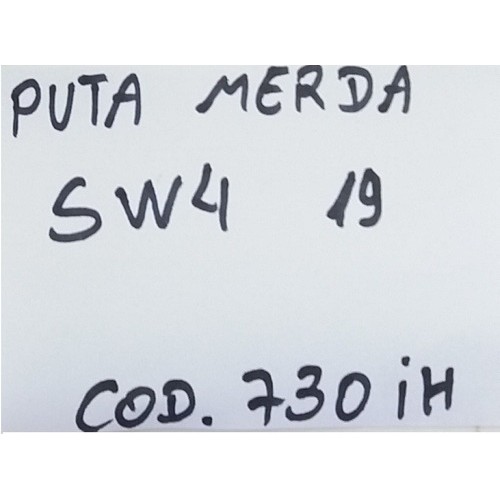 PUTA MERDA
SW4 19
COD. 730iH